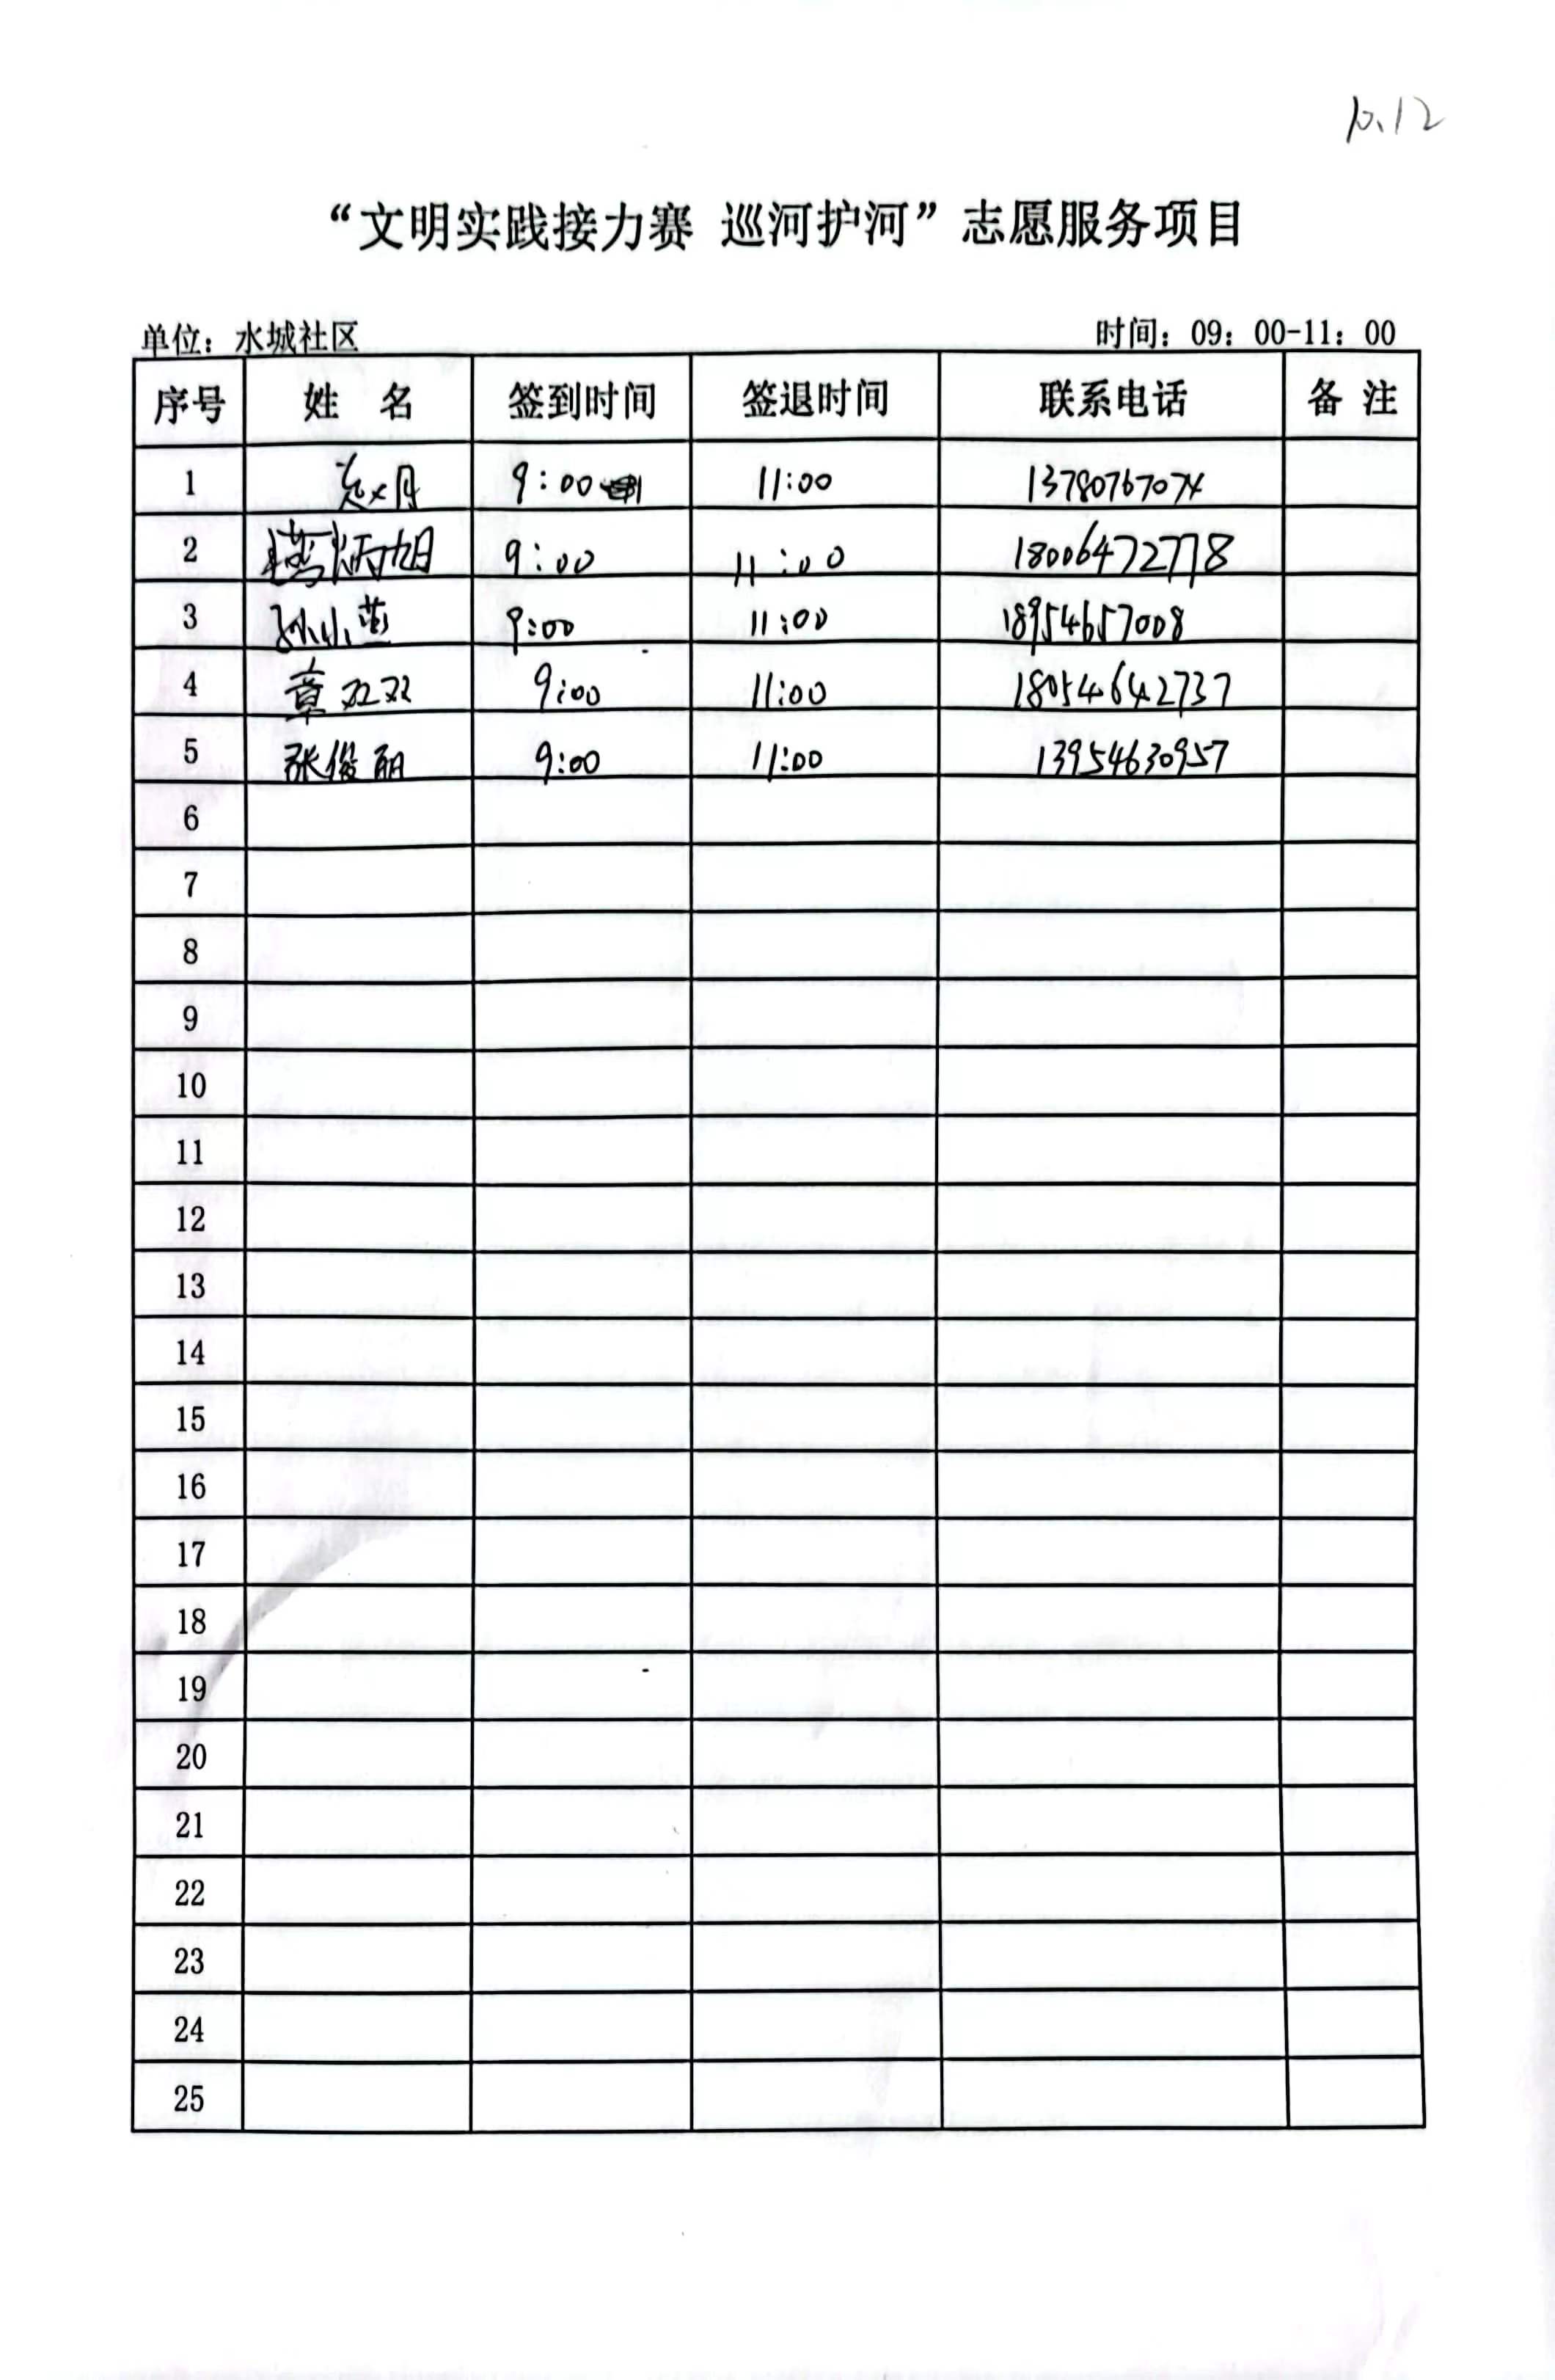 10.12
“文明实践接力赛 巡河护河”志愿服务项目
单位：水城社区 时间：09：00-11：00
序号 姓 名 签到时间 签退时间 联系电话 备 注
1 9:00 11:00 1378076707X
2 炳旭 9:00 11:00 18006472778
3 孙小燕 9:00 11:00 18954657008
4 章双双 9:00 11:00 18054642737
5 张俊丽 9:00 11:00 13954630957
6
7
8
9
10
11
12
13
14
15
16
17
18
19
20
21
22
23
24
25